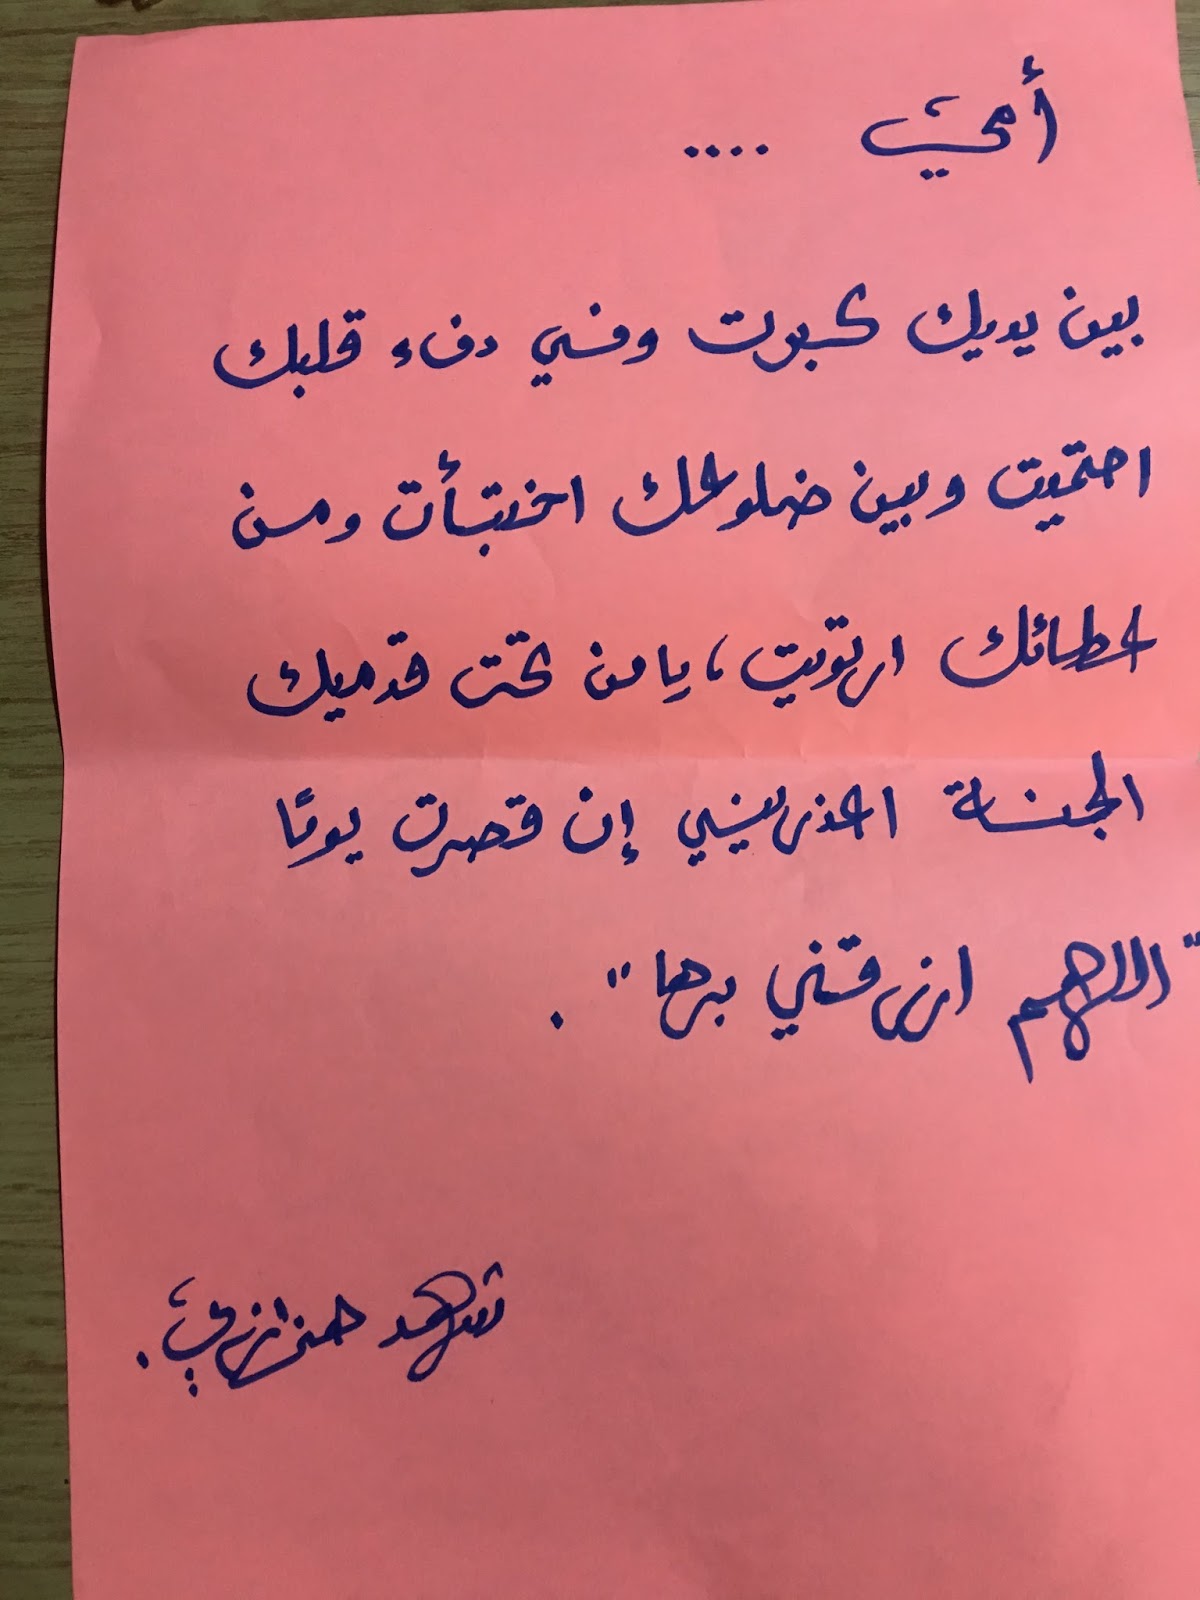 أمي ....
بين يديك كبرت وفي دفء قلبك
احتميت وبين ضلوعك اختبأت ومن
عطائك ارتويت، يا من تحت قدميك
الجنة اعذريني إن قصرت يومًا
"اللهم ارزقني برها".
شهد